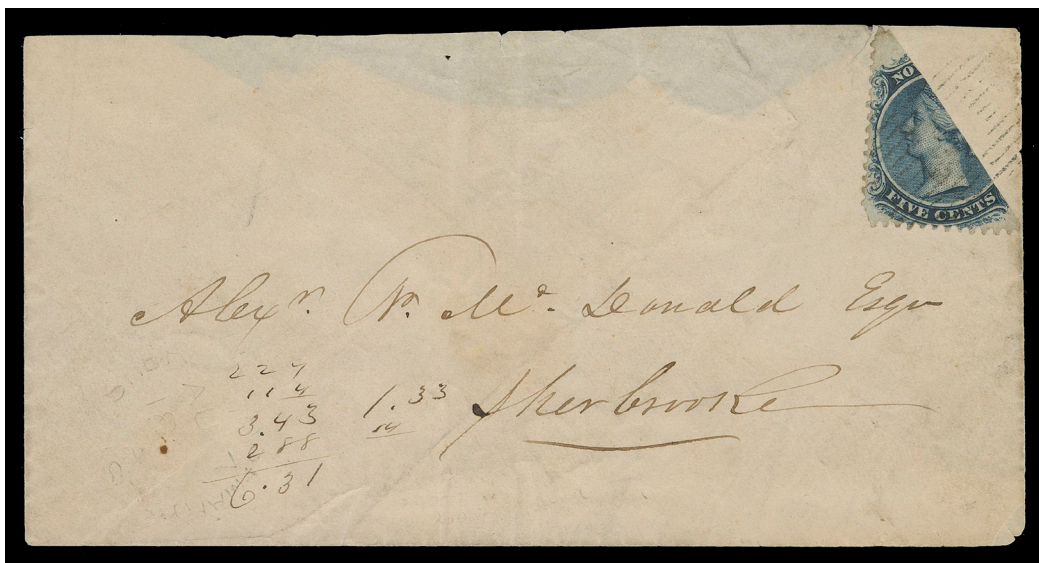 NO
FIVE CENTS
Alexr. Mc. Donald Esqr
Sherbrooke
227
114
3.43
288
6.31
1.33